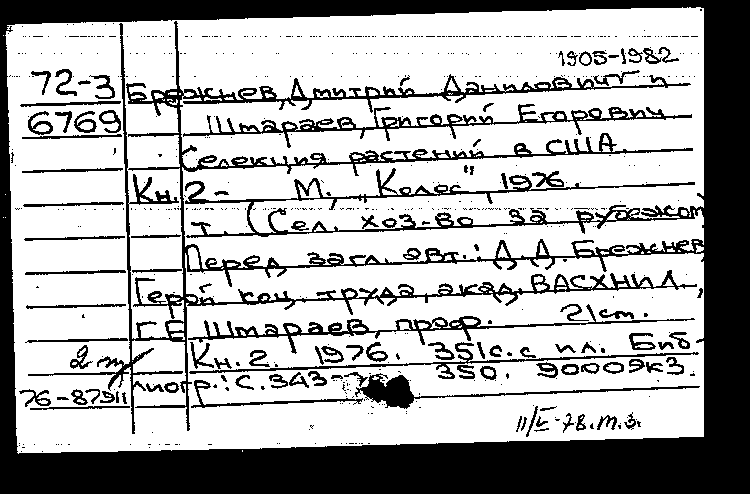 1905-1982
72-3 Брежнев, Дмитрий Данилович и
6769 Штараев, Григорий Егорович
Селекция растений в США.
Кн. 2- М., „Колос", 1976.
т. (Сел. хоз-во за рубежом
Перед загл. авт.: Д.Д. Брежнев,
Герой соц. труда, акад. ВАСХНИЛ,
Г.Е Штараев, проф. 21см.
Кн. 2. 1976. 351с. с ил. Биб-
лиогр.: с. 343- 350. 9000экз.
76-87911
11/V-78.т.з.